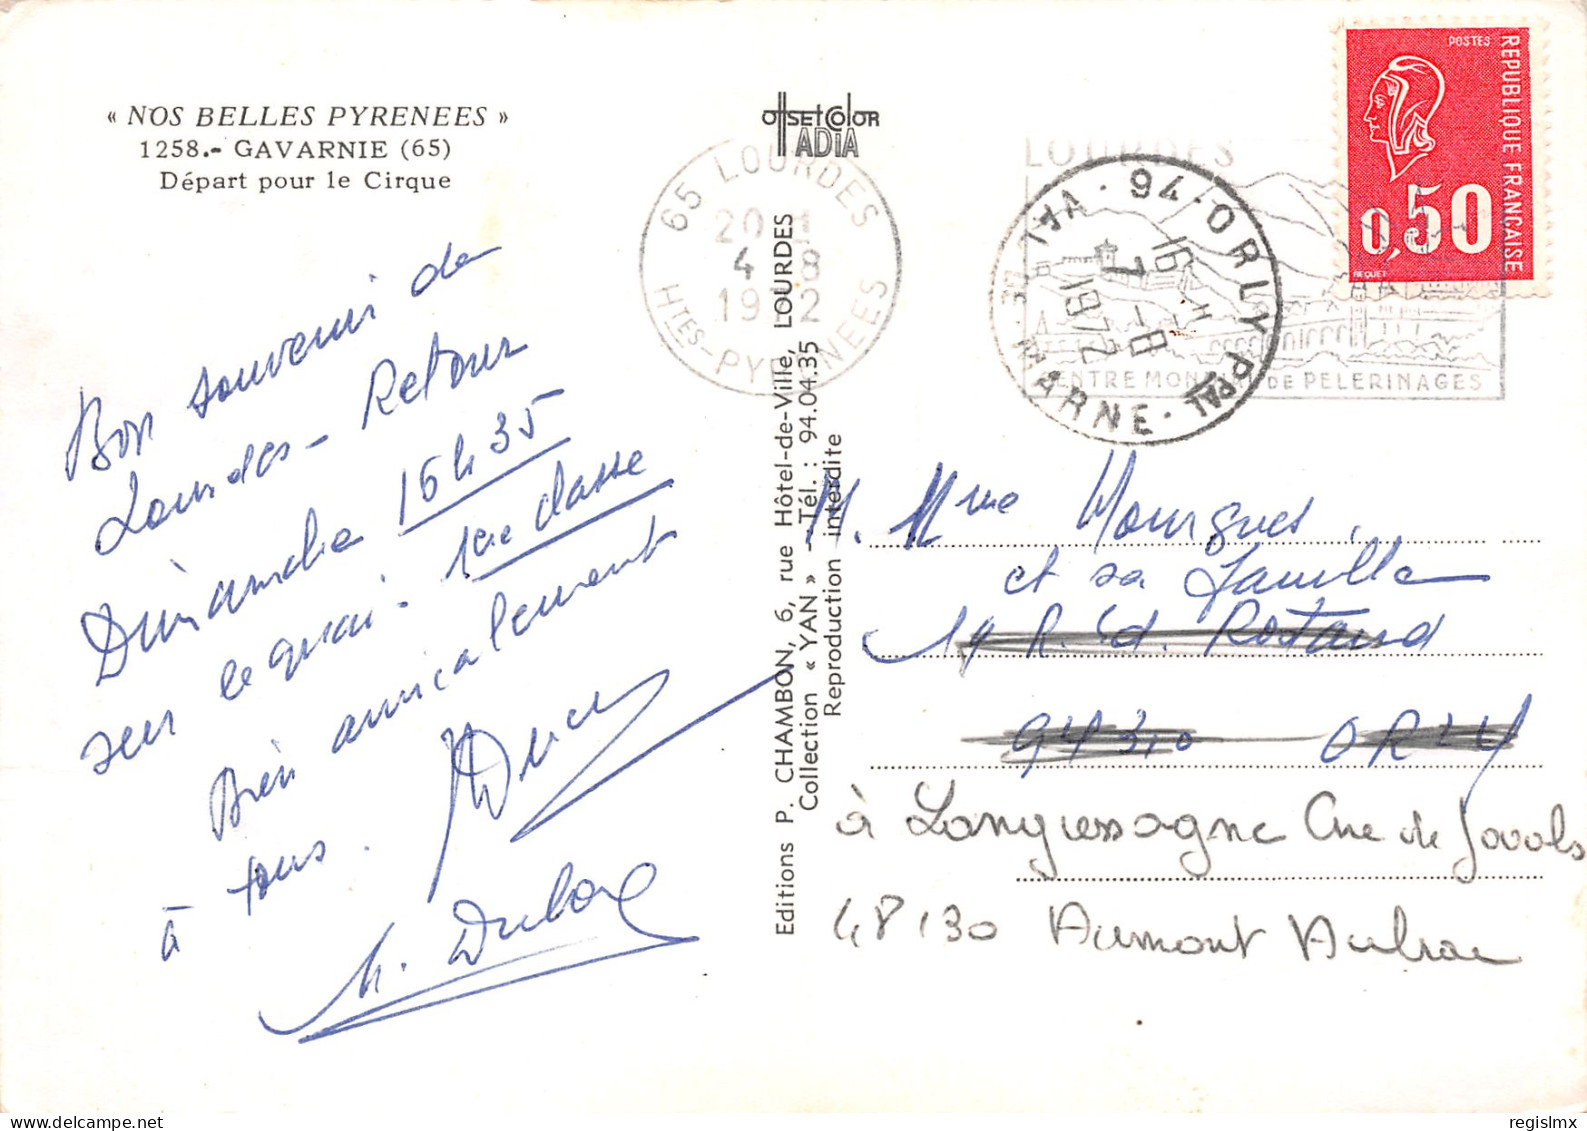 « NOS BELLES PYRENEES »
1258.- GAVARNIE (65)
Départ pour le Cirque
Bon souvenir de
Lourdes - Retour
Dimanche 16h35
sur le quai - 1ère classe
Bien amicalement
à tous.
M. Dubox
offsetcolor
ADIA
65 LOURDES
20 H
4 - 8
1972
HTES-PYRENEES
LOURDES
CENTRE MONDIAL DE PELERINAGES
94 - ORLY PPAL
16 H
7 - 8
1972
VAL DE MARNE
POSTES
REPUBLIQUE FRANÇAISE
0,50
BEQUET
Editions P. CHAMBON, 6, rue Hôtel-de-Ville, LOURDES
Collection « YAN » - Tél. : 94.04.35
Reproduction interdite
M. Mme Mourgues
et sa famille
19 R. Ed. Rostand
94310 ORLY
à Langessagne Cne de Javols
48130 Aumont Aubrac
regislmx